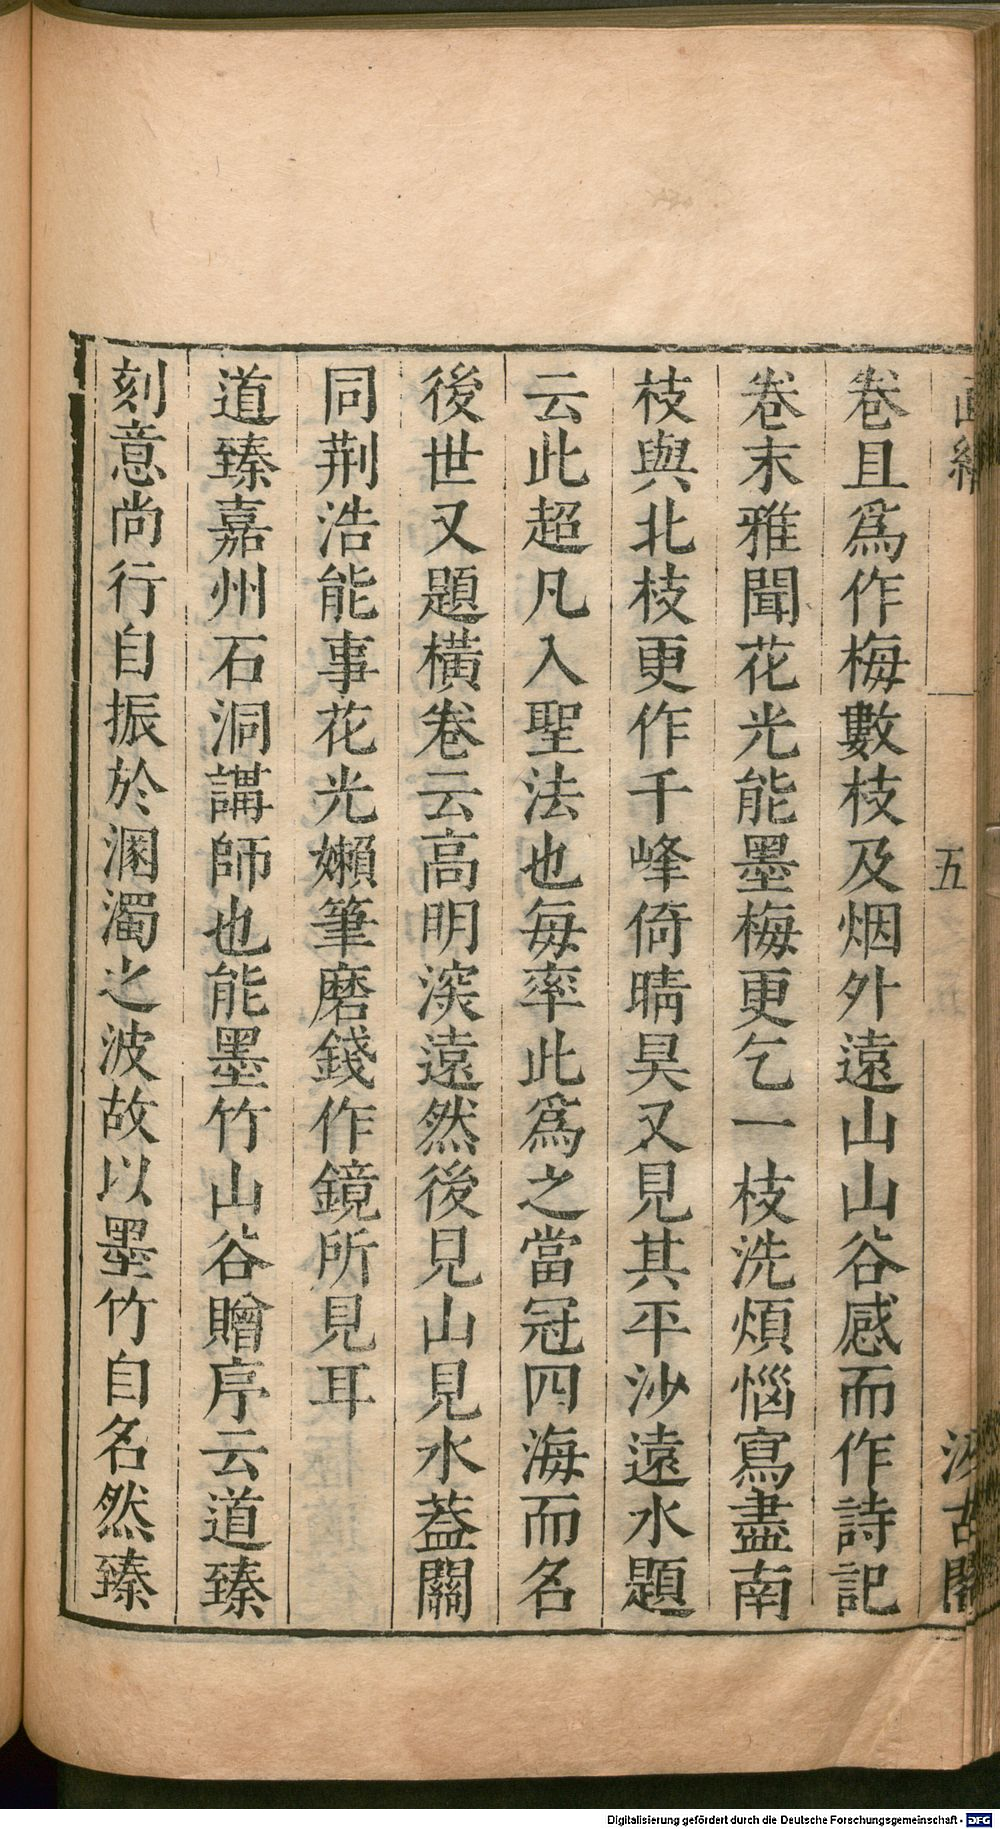 五
卷且爲作梅數枝及烟外遠山山谷感而作詩記
卷末雅聞花光能墨梅更乞一枝洗煩惱寫盡南
枝與北枝更作千峰倚晴昊又見其平沙遠水題
云此超凡入聖法也每率此爲之當冠四海而名
後世又題橫卷云高明深遠然後見山見水蓋關
同荆浩能事花光嬾筆磨錢作鏡所見耳
道臻嘉州石洞講師也能墨竹山谷贈序云道臻
刻意尚行自振於溷濁之波故以墨竹自名然臻
Digitalisierung gefördert durch die Deutsche Forschungsgemeinschaft - DFG